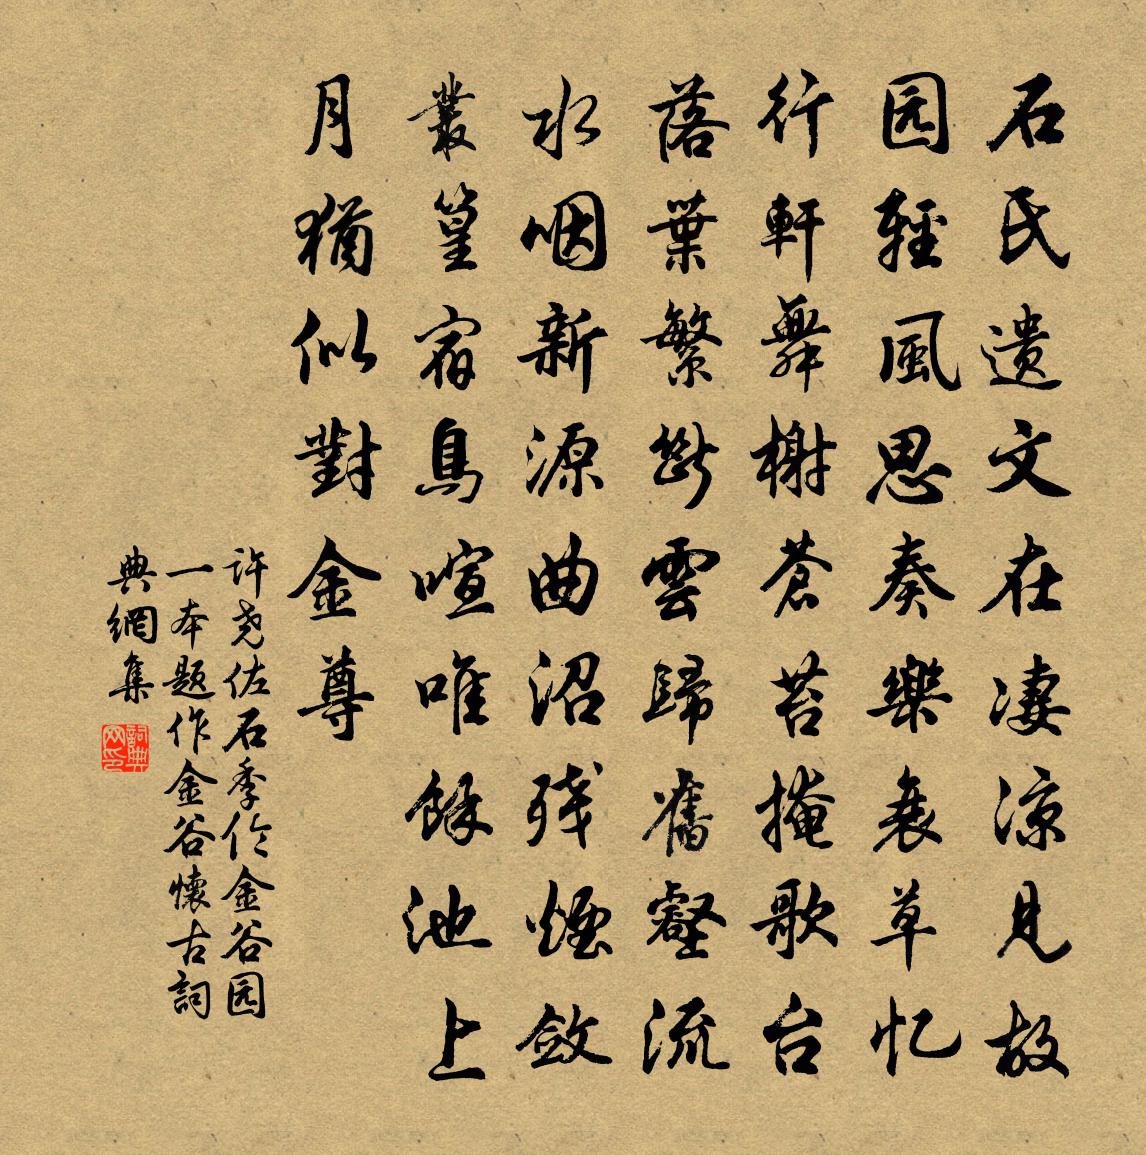 石氏遗文在凄凉见故
园輕風思奏樂衰草忆
行軒舞榭蒼苔掩歌台
落葉繁断雲歸舊壑流
水咽新源曲沼残煙敛
叢篁宿鳥喧唯餘池上
月猶似對金尊
许尧佐石季伦金谷园
一本题作金谷懷古詞
典網集
詞典网印